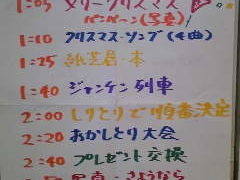 1:05 メリークリスマス
パンパーン(写真)
1:10 クリスマス・ソング(4曲)
1:25 紙芝居・本
1:40 ジャンケン列車
2:00 しりとりで順番決定
2:20 おかしとり大会
2:40 プレゼント交換
写真・さようなら